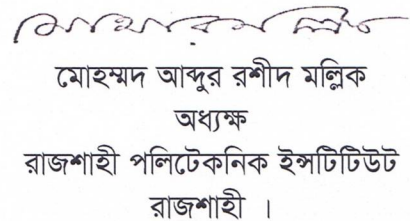 মোহম্মদ আব্দুর রশীদ মল্লিক
অধ্যক্ষ
রাজশাহী পলিটেকনিক ইন্সটিটিউট
রাজশাহী ।